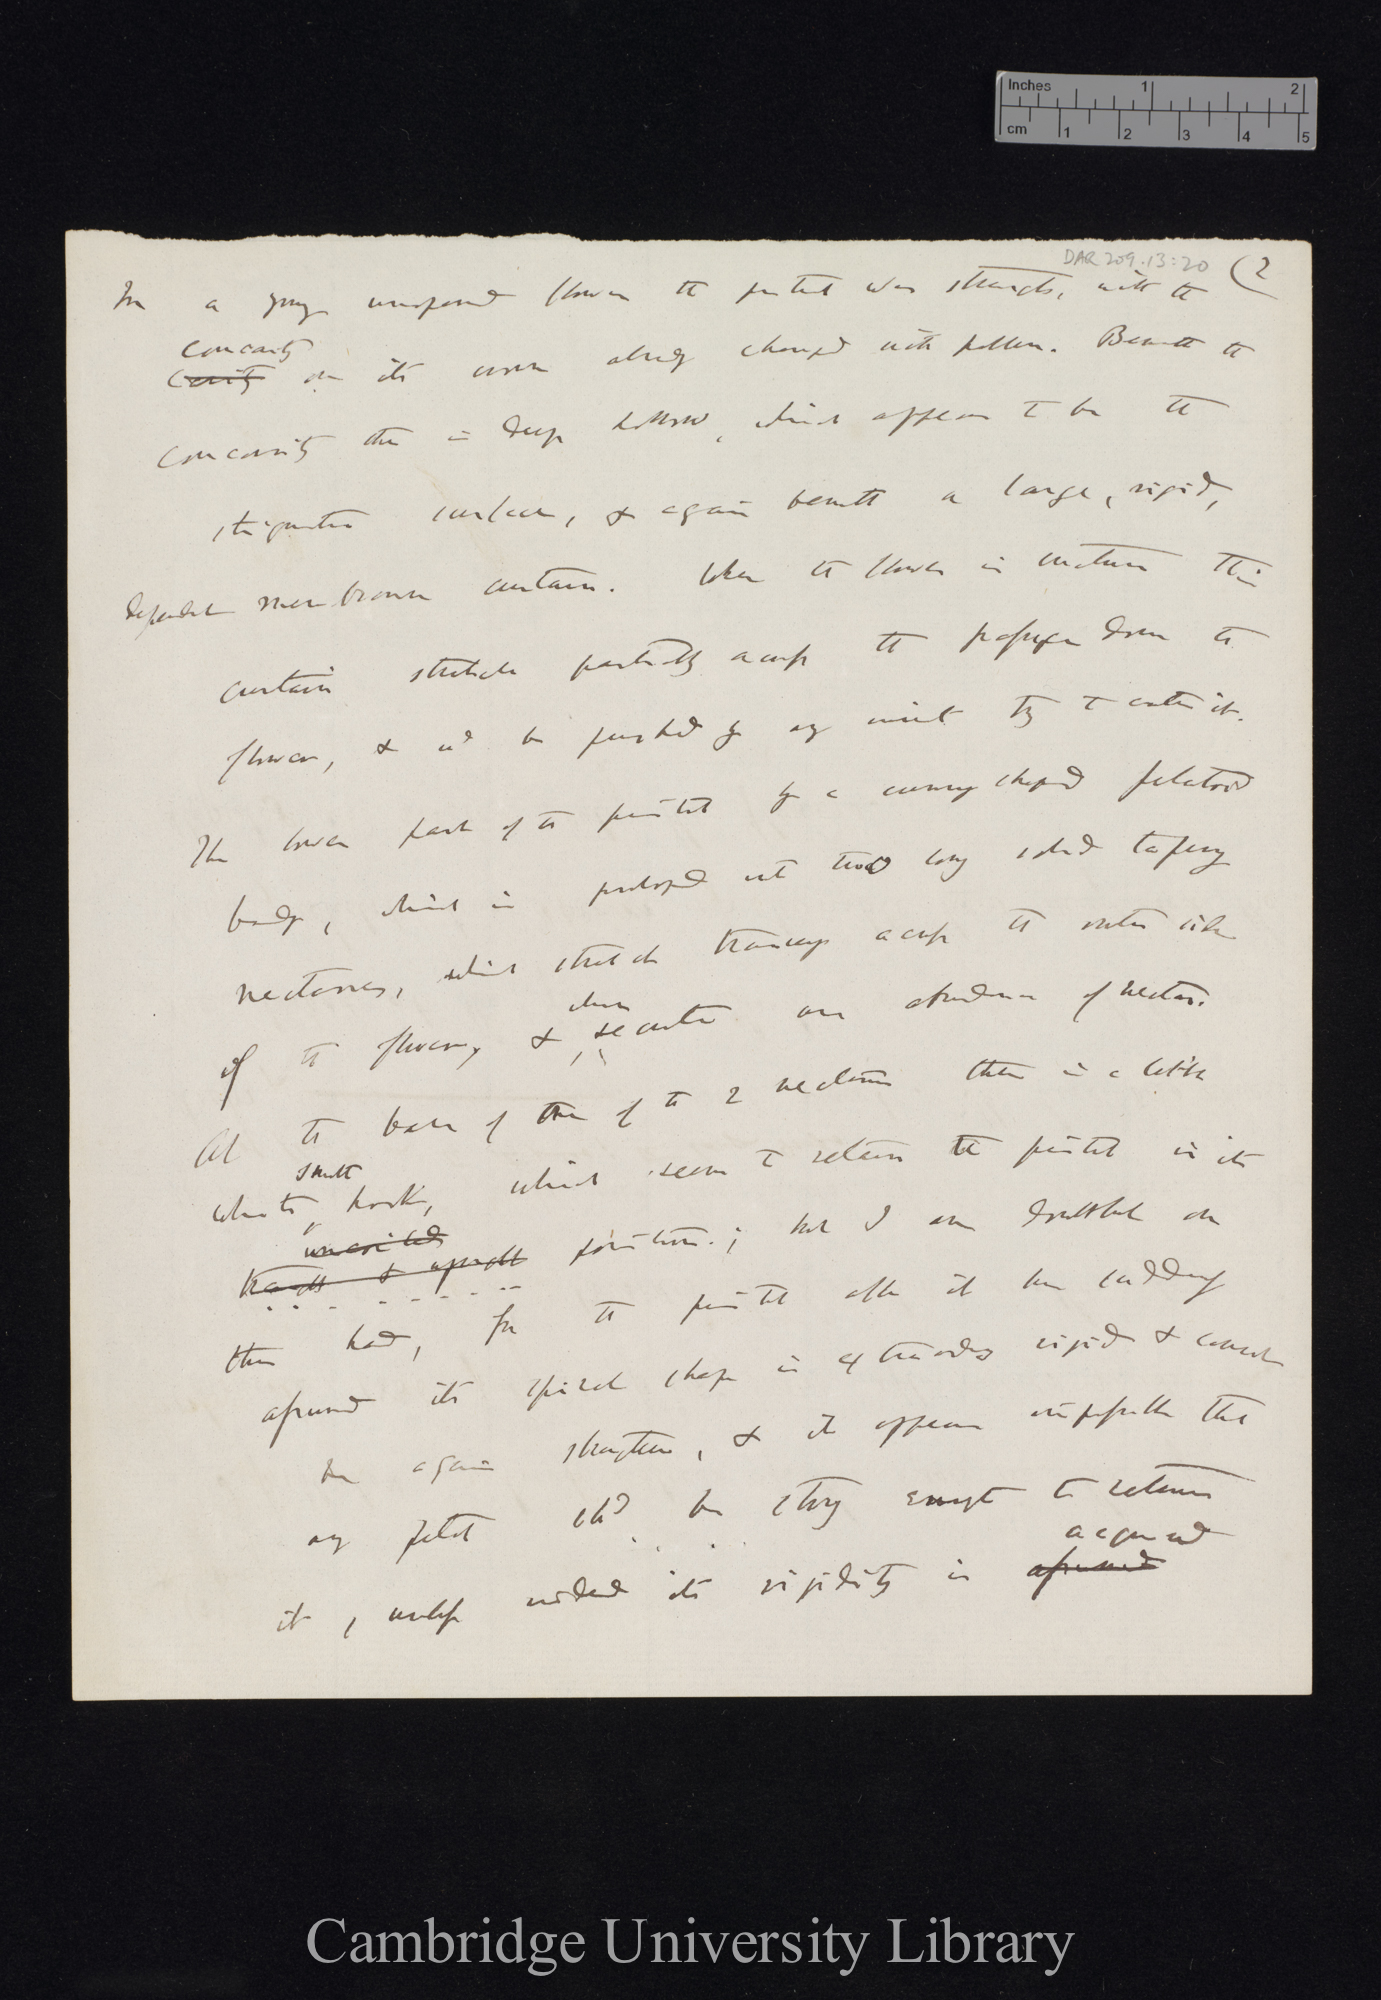 Inches 1 2
cm 1 2 3 4 5
DAR 209.13:20 (2
In a young unopened flower the pistil was straight, with the
concavity
cavity on its already charged with pollen. Beneath the
concavity there is deep hollow, which appears to be the
stigmatic surface, & again beneath a large, rigid,
dependent membranous curtain. When the flower is mature this
curtain stretches partially across the passage down the
flower, & wd be pushed by any insect trying to enter it.
The lower part of the pistil by a curiously shaped petaloid
body, which is prolonged into two long solid tapering
nectaries, which stretch transversely across the outer side
of the flower, & secrete an abundance of nectar.
At the base of one of the 2 nectaries there is a little
smooth
white hook, which seems to retain the pistil in its
uncoiled
straight & upright position; but I am doubtful on
this head, for the pistil after it has suddenly
assumed its spiral shape is extraordy rigid & cannot
be again straightened, & it appears impossible that
any petal shd be strong enough to retain
acquired
it, unless indeed its rigidity is assumed
Cambridge University Library